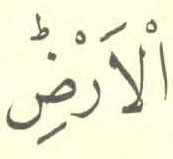 الْاَرْضِؕ